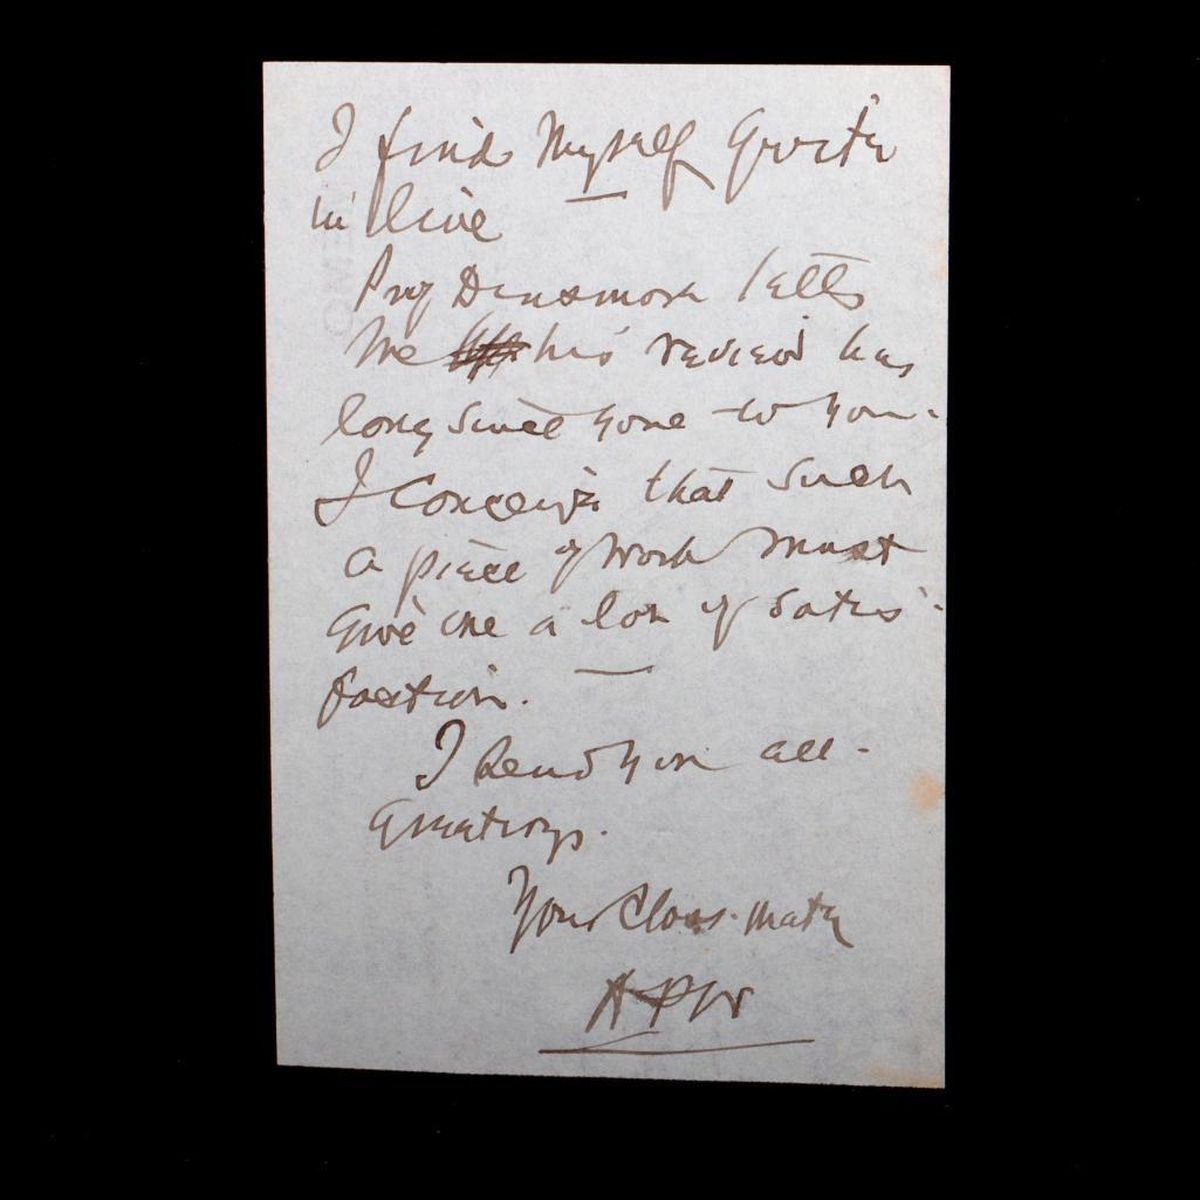 I find myself quite
in line
Prof Densmore tells
me his review has
long since gone to you.
I conceive that such
a piece of work must
give one a lot of satis-
faction.
I send you all
greetings.
Your Class-mate
APW